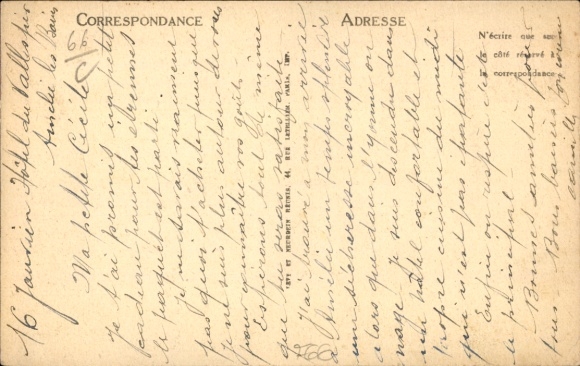 CORRESPONDANCE
ADRESSE
N'écrire que sur
le côté réservé à
la correspondance
LEVY ET NEURDEIN RÉUNIS, 44, RUE LETELLIER, PARIS, IMP.
16 Janvier Hôtel du Vallespir
Amélie les Bains
Ma petite Cécile
Je t'ai promis un petit
cadeau pour tes étrennes
le paquet est parti
Je ne savais vraiment
pas quoi t'acheter puisque
je ne suis plus autour de vous
pour connaître vos goûts
Espérons tout de même
que tu seras satisfaite
J'ai trouvé à mon arrivée
à Amélie un temps splendide
une sécheresse incroyable
alors que dans l'Yonne on
nage Je suis descendue dans
un hôtel confortable et
propre cuisine du midi
qui n'est pas parfaite
Enfin on respire c'est
le principal
Bonnes amitiés pour
tous Bons baisers
65
266